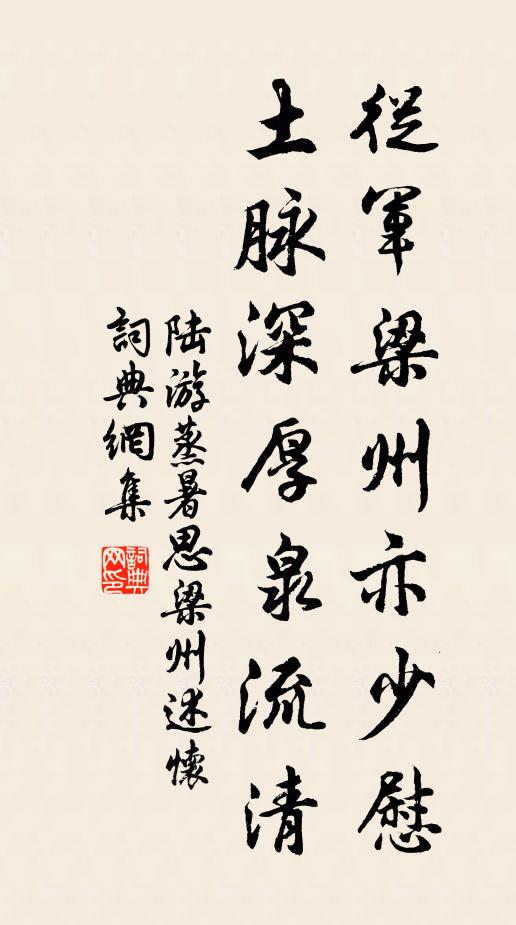 從軍梁州亦少慰
土脉深厚泉流清
陆游蒸暑思梁州述懷
詞典網集
詞典网印